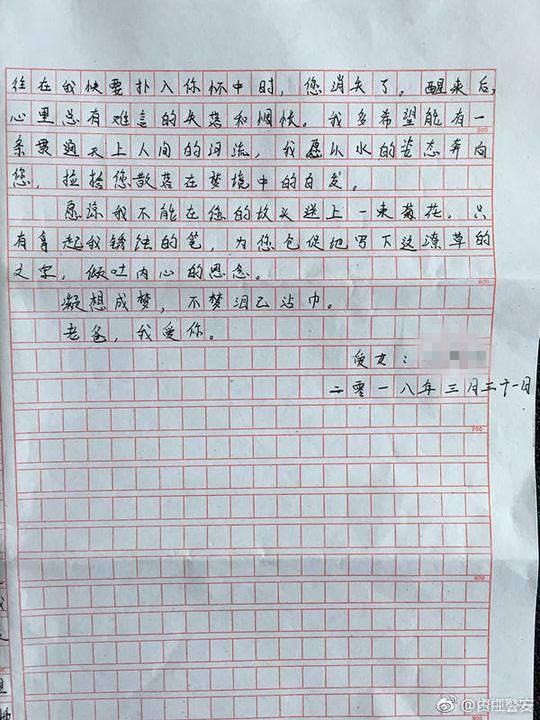 往在我快要扑入你怀中时，您消失了。醒来后，
心里总有难言的失落和惆怅。我多希望能有一
条贯通天上人间的河流，我愿以水的姿态奔向
您，拉拾您散落在梦境中的白发。
愿谅我不能在您的坟头送上一束菊花。只
有拿起我锈蚀的笔，为您仓促地写下这潦草的
文字，倾吐内心的思念。
凝想成梦，不梦泪已沾巾。
老爸，我爱你。
爱女：
二零一八年三月三十一日
500
600
700
800
@内江公安